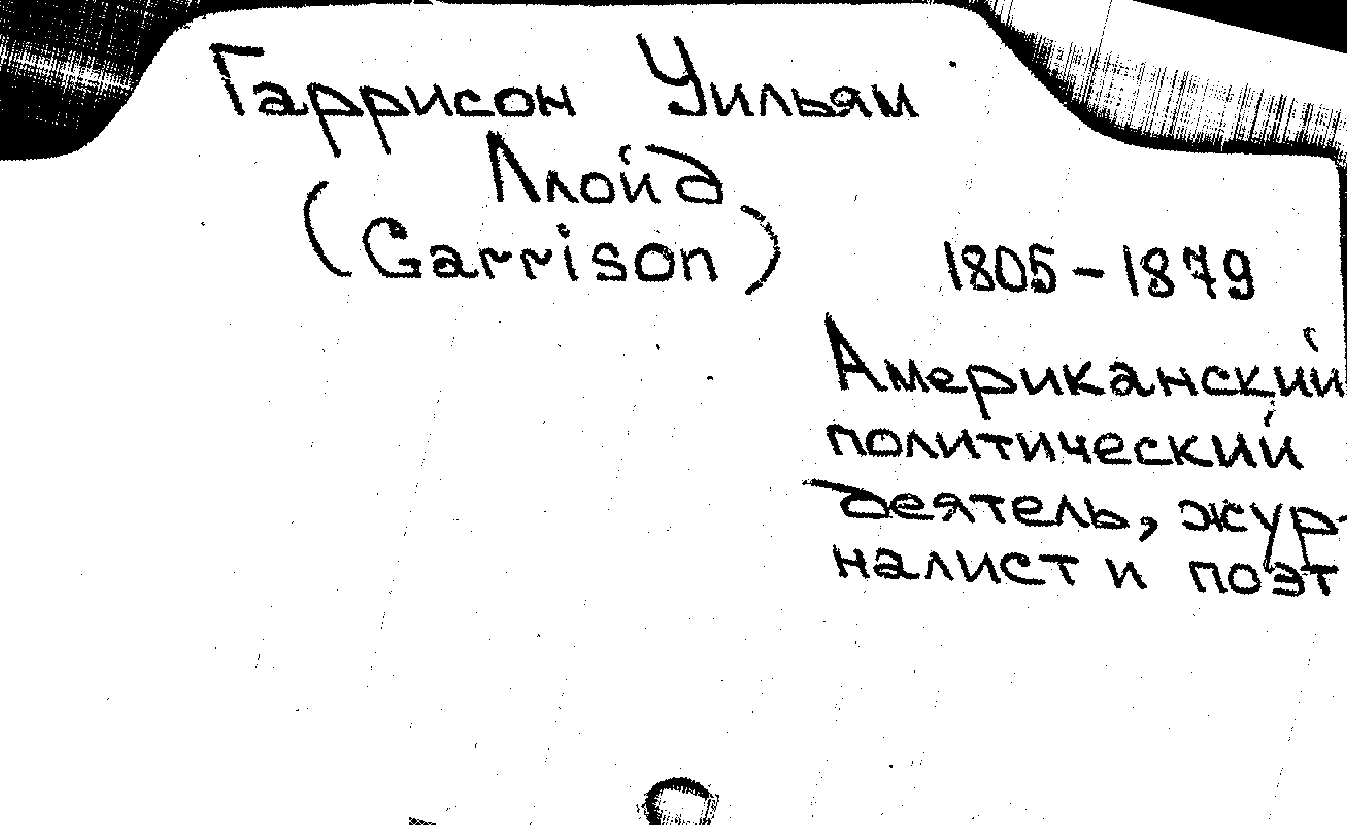 Гаррисон Уильям
Ллойд
(Garrison)
1805-1879
Американский
политический
деятель, жур-
налист и поэт